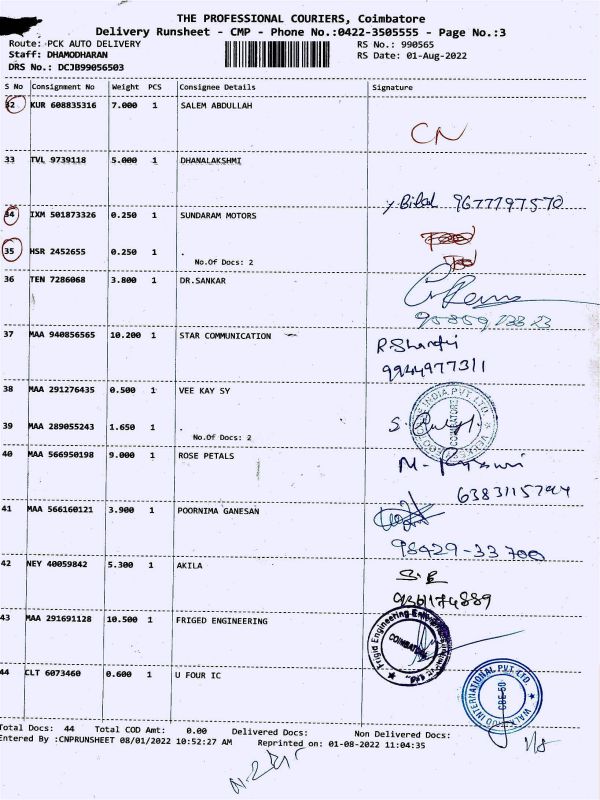 THE PROFESSIONAL COURIERS, Coimbatore
Delivery Runsheet - CMP - Phone No.:0422-3505555 - Page No.:3
Route: PCK AUTO DELIVERY RS No.: 990565
Staff: DHAMODHARAN RS Date: 01-Aug-2022
DRS No.: DCJB99056503
S No Consignment No Weight PCS Consignee Details Signature
32 KUR 608835316 7.000 1 SALEM ABDULLAH
CN
33 TVL 9739118 5.000 1 DHANALAKSHMI
Bilal 9677797570
34 IXM 501873326 0.250 1 SUNDARAM MOTORS
35 HSR 2452655 0.250 1 .
No.Of Docs: 2
36 TEN 7286068 3.800 1 DR.SANKAR
37 MAA 940856565 10.200 1 STAR COMMUNICATION
R.Shanthi
9944977311
38 MAA 291276435 0.500 1 VEE KAY SY
39 MAA 289055243 1.650 1 .
No.Of Docs: 2
INDIA PVT. LTD.
COIMBATORE
S.
40 MAA 566950198 9.000 1 ROSE PETALS
M-
6383115794
41 MAA 566160121 3.900 1 POORNIMA GANESAN
98429-33700
42 NEY 40059842 5.300 1 AKILA
43 MAA 291691128 10.500 1 FRIGED ENGINEERING
Frigid Engineering
COIMBATORE
44 CLT 6073460 0.600 1 U FOUR IC
INTERNATIONAL PVT. LTD.
CBE-50
Total Docs: 44 Total COD Amt: 0.00 Delivered Docs: Non Delivered Docs:
Entered By :CNPRUNSHEET 08/01/2022 10:52:27 AM Reprinted on: 01-08-2022 11:04:35